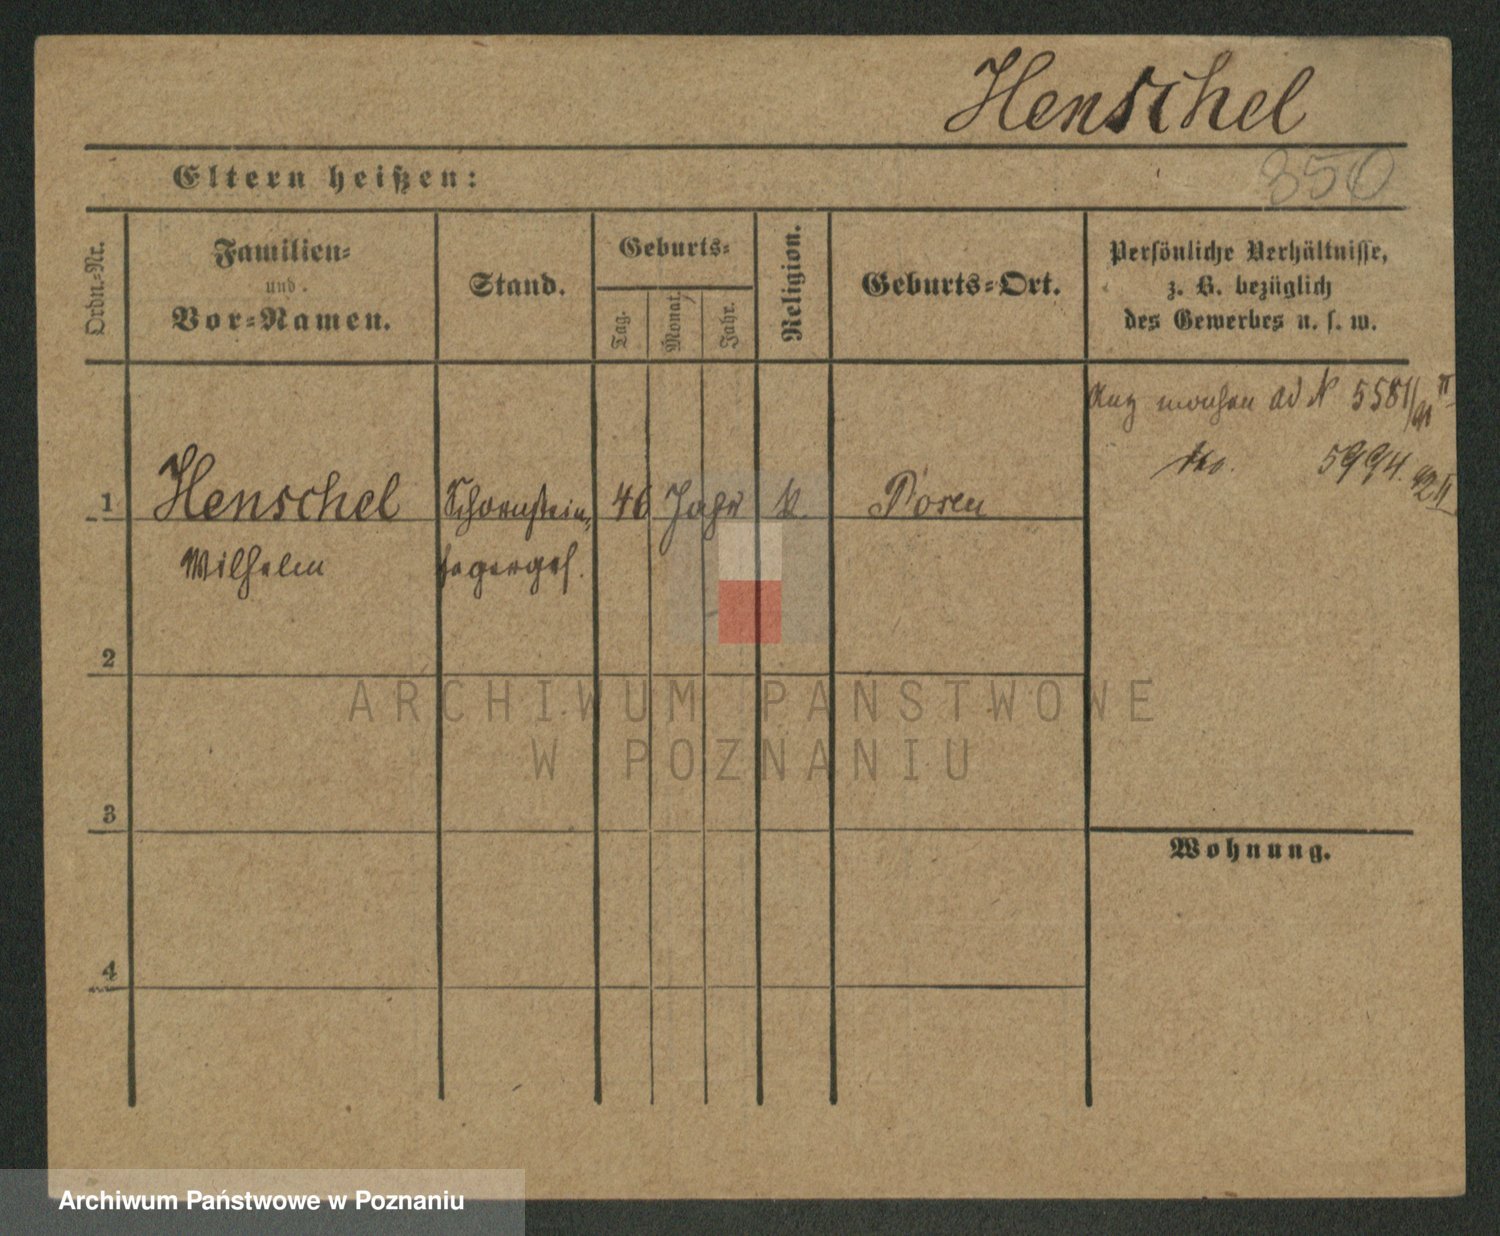 Henschel
Eltern heißen:
350
Ordn.-Nr.
Familien-
und
Vor-Namen.
Stand.
Geburts-
Tag.
Monat.
Jahr.
Religion.
Geburts-Ort.
Persönliche Verhältnisse,
z. B. bezüglich
des Gewerbes u. s. w.
ad № 5581/91 II
1 Henschel Schornstein- 46 Jahr k. Posen
5994. 92 II
Wilhelm fegerges.
2
ARCHIWUM PAŃSTWOWE
W POZNANIU
3
Wohnung.
4
Archiwum Państwowe w Poznaniu